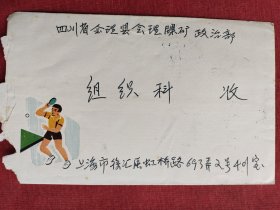 四川省会理县会理镍矿政治部
组织科 收
上海市徐汇区虹桥路693弄2号401室